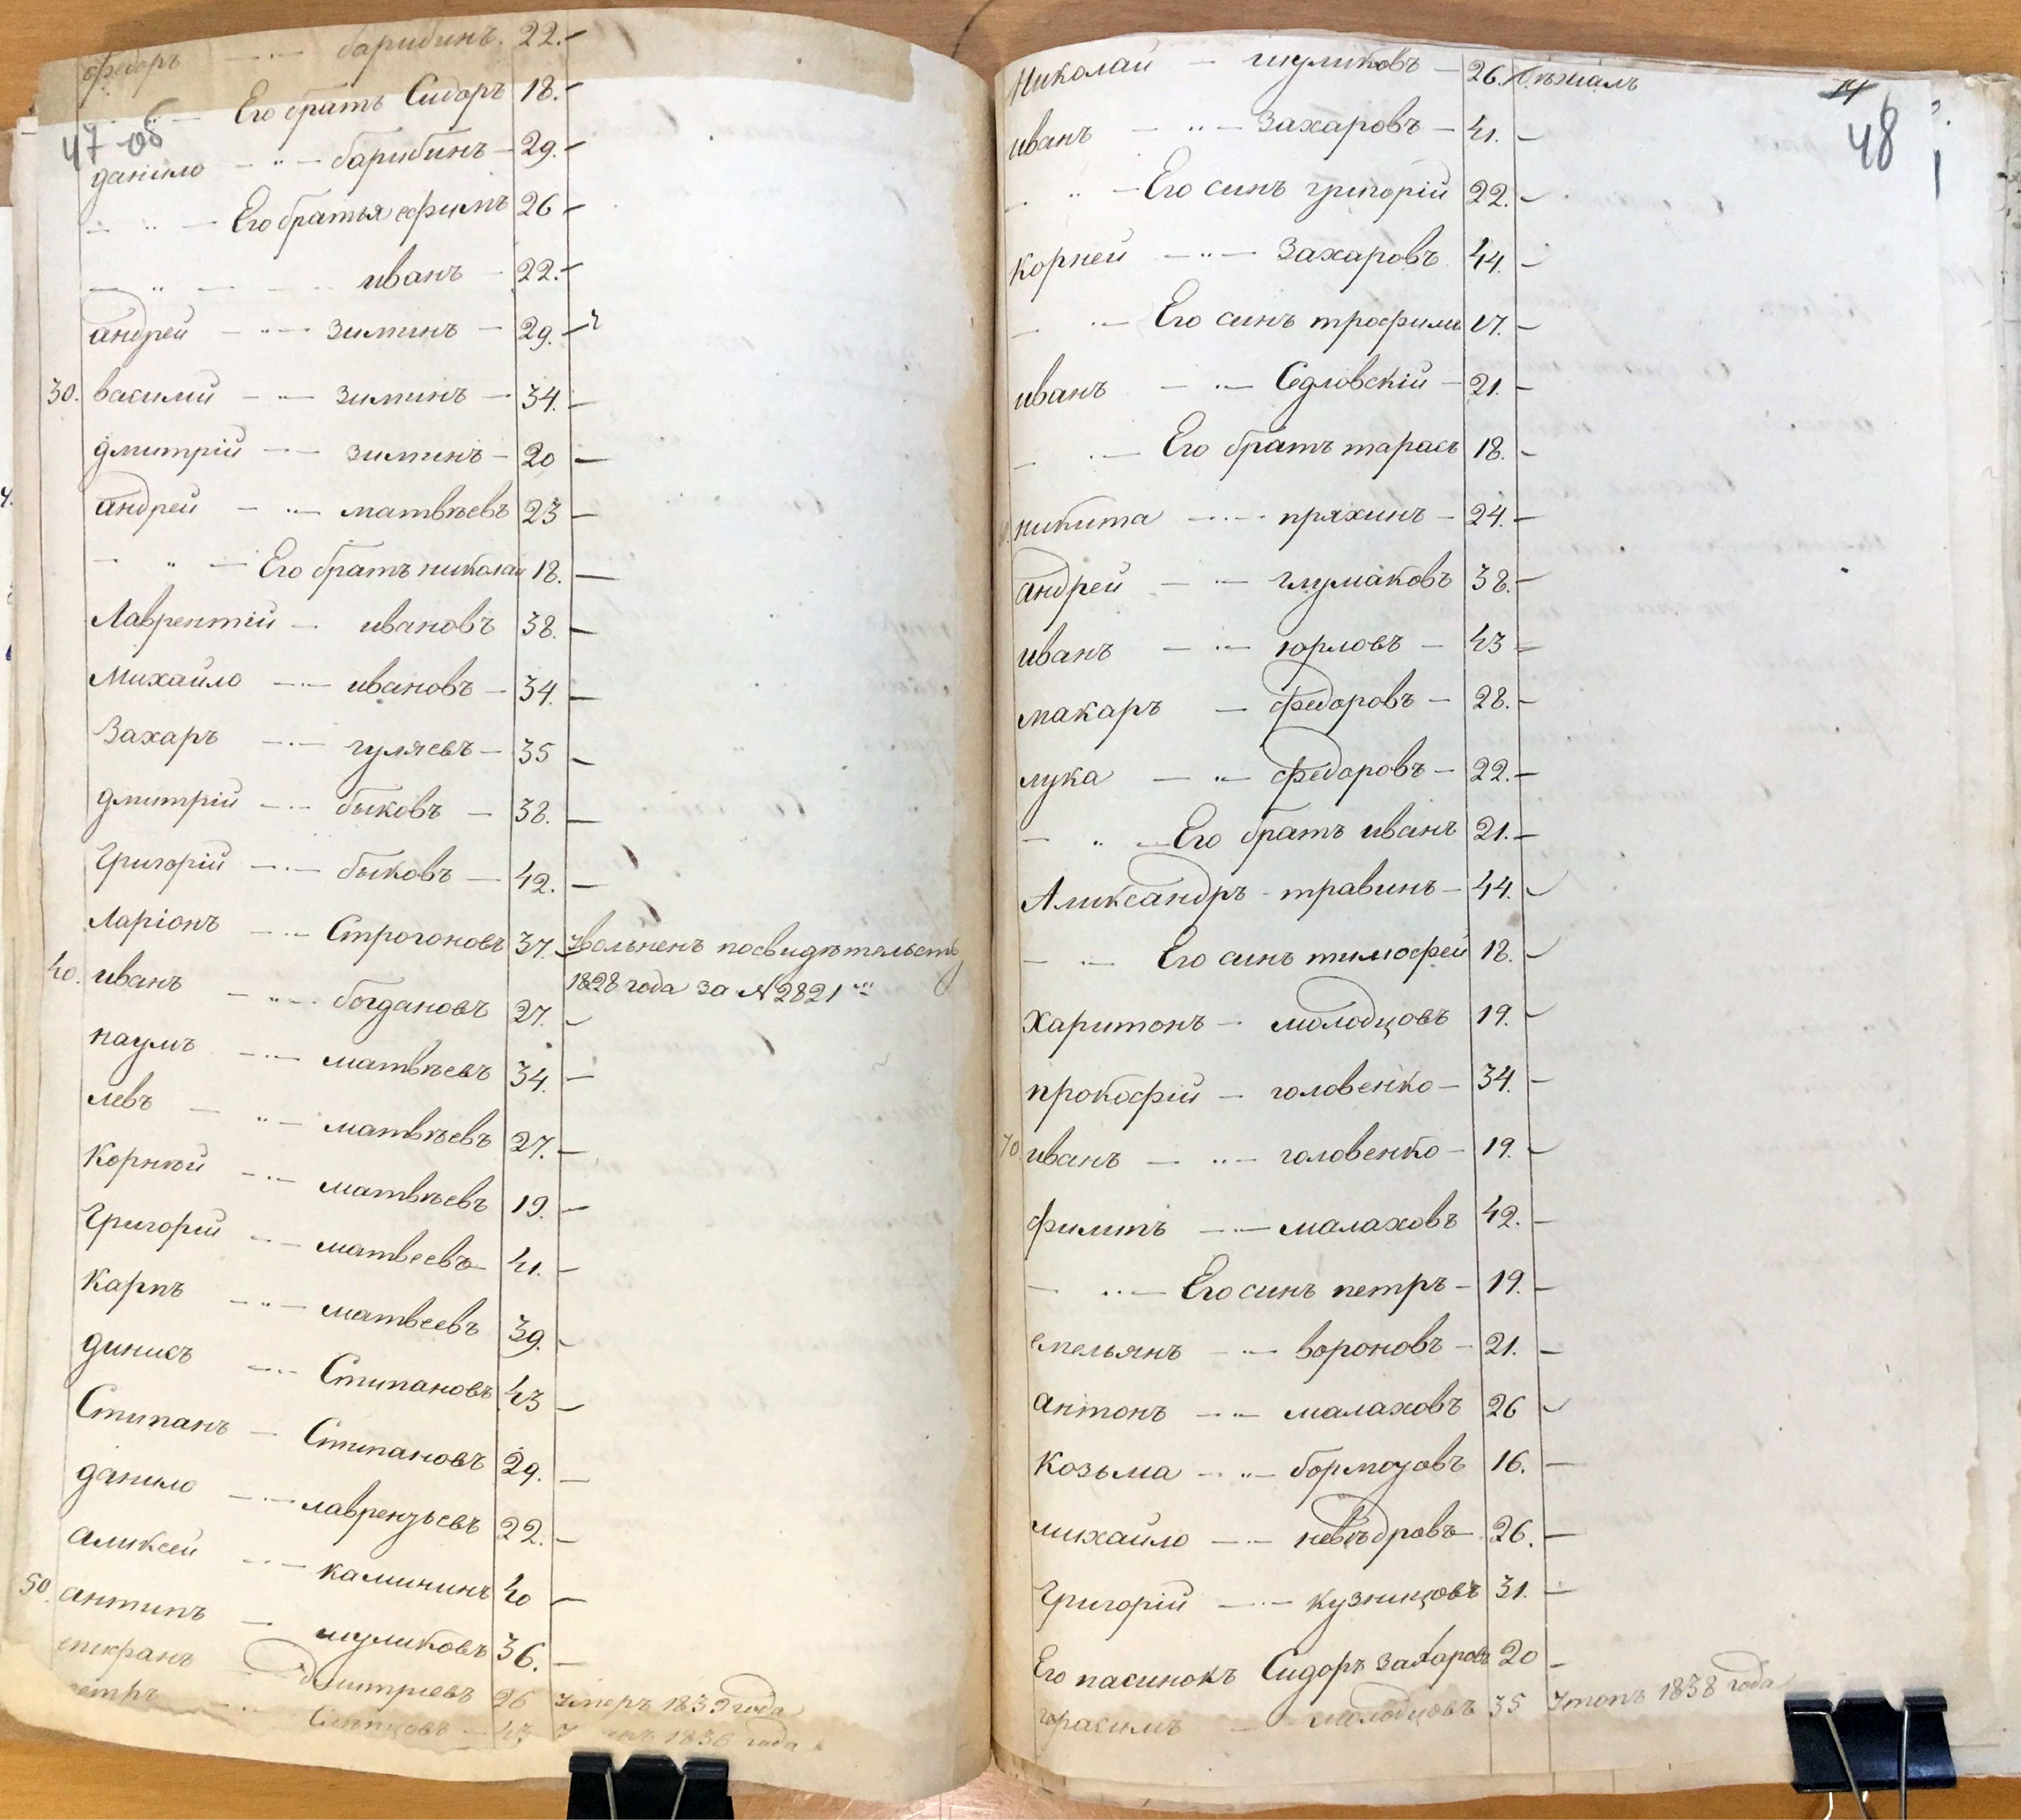 47 об
федоръ — барибинъ. 22. —
Его братъ Сидоръ 18. —
данило — барибинъ — 29. —
Его братья ефимъ 26 —
иванъ — 22. —
андрей — зиминъ — 29. —
30. василий — зиминъ — 34. —
дмитрій — зиминъ — 20 —
андрей — матвѣевъ 23 —
Его братъ николай 18. —
Лаврентій — ивановъ 38. —
Михайло — ивановъ — 34. —
Захаръ — гуляевъ — 35 —
дмитрій — быковъ — 38. —
Григорій — быковъ — 42. —
Ларіонъ — Строгоновъ 37. Уволненъ посвидѣтельств
1828 года за №2821
40. иванъ — богдановъ 27. —
наумъ — матвѣевъ 34. —
левъ — матвѣевъ 27. —
Корнѣй — матвѣевъ 19. —
Григорей — матвеевъ 41. —
Карпъ — матвеевъ 39. —
динисъ — Стипановъ 43 —
Стипанъ — Стипановъ 29. —
данило — лаврензьевъ 22. —
аликсей — калининъ 40 —
50. антипъ — шуликовъ 36. —
Дмитриевъ 26 Умеръ 1839 года
43 1836 года
14
48
Николай — шуликовъ — 26. бѣжалъ
иванъ — Захаровъ — 41. —
Его синъ григорій 22. —
Корней — Захаровъ 44. —
Его синъ трофимъ 17. —
иванъ — Седловскій — 21. —
Его братъ тарасъ 18. —
никита — пряхинъ — 24. —
андрей — глумаковъ 38. —
иванъ — юрловъ — 43 —
макаръ — федоровъ — 28. —
лука — федоровъ — 22. —
Его братъ иванъ 21. —
Аликсандръ — травинъ — 44. —
Его синъ тимофей 18. —
Харитонъ — молодцовъ 19. —
прокофій — головенко — 34. —
70. иванъ — головенко — 19. —
филипъ — малаховъ 42. —
Его синъ петръ — 19. —
емельянъ — вороновъ — 21. —
антонъ — малаховъ 26 —
Козьма — бормозовъ 16. —
михайло — невѣдровъ 26. —
Григорій — кузницовъ 31. —
Его пасинокъ Сидоръ Захаровъ 20 —
гарасимъ — молодцовъ 35 Утопъ 1838 года